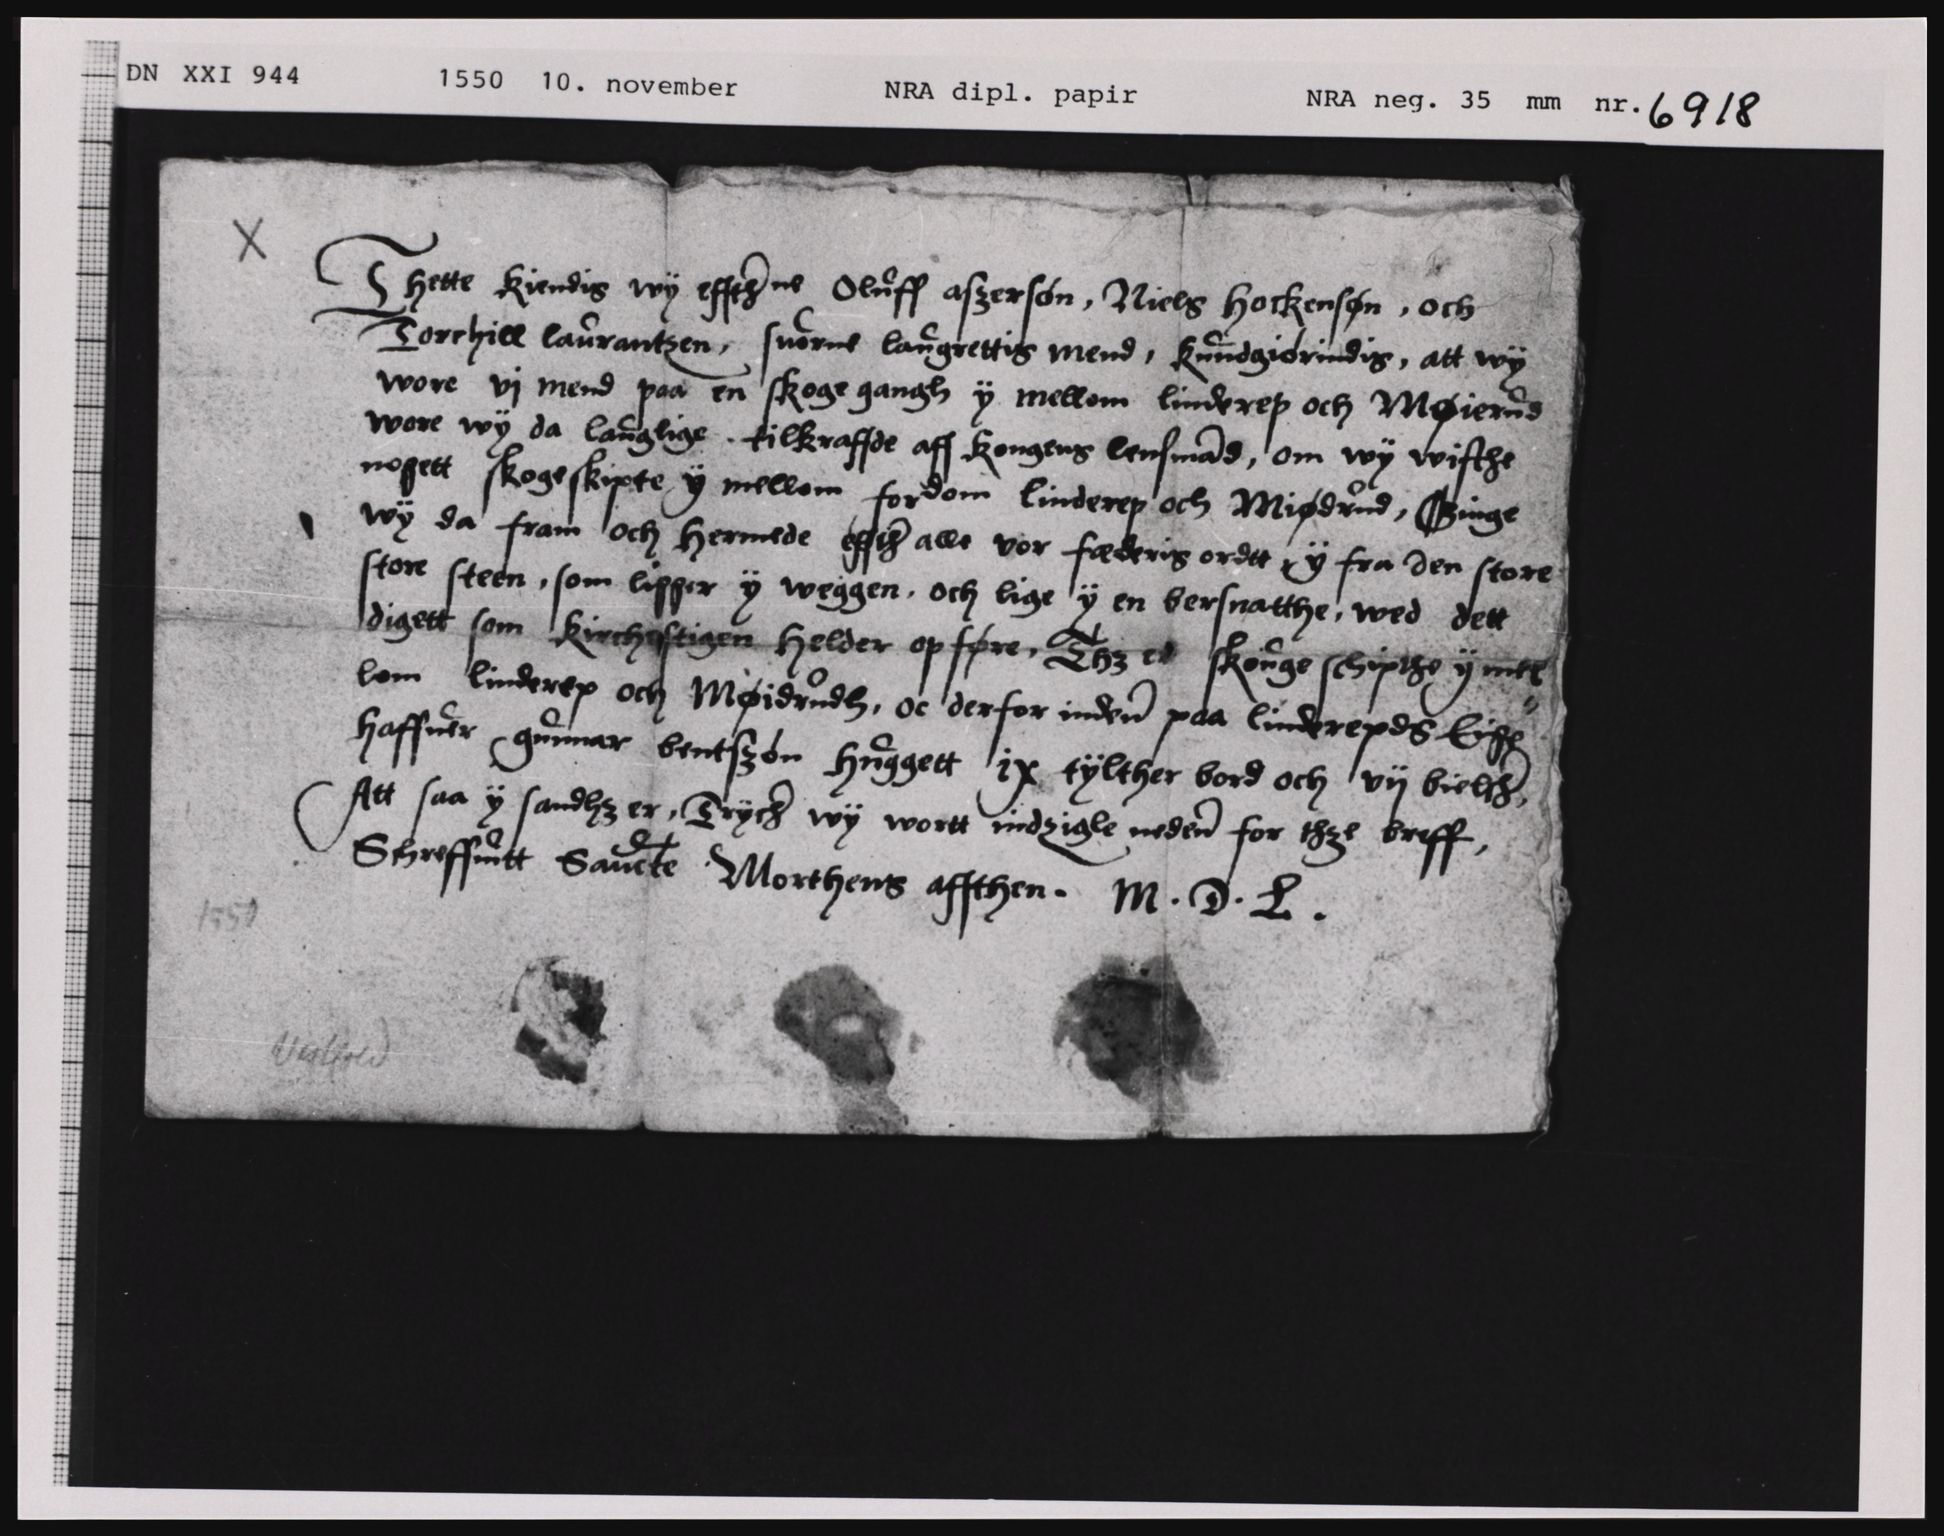 DN XXI 944 1550 10. november NRA dipl. papir NRA neg. 35 mm nr. 6918
X
Thette kiendis wÿ effthrne Oluff aszersøn, Niels Hockensøn, och
Torchill laurantzen, suorne laugrettis mend, kundgiørindis, att wÿ
wore vj mend paa en skoge gangh ÿ mellom linderep och Møierud
wore wÿ da lauglige tilkraffde aff kongens lensmand, om wÿ wisthe
nogett skogeskipte ÿ mellom fordom linderep och Miødrud, Ginge
wÿ da fram och hermede effthr alle vor fæderis ordtt ÿ fra den store
store steen, som ligger ÿ weggen, och lige ÿ en bersnatthe, wed dett
digett som kirchestigen helder op føre, Thz er skouge schipthe ÿ mel
lom linderep och Møidrudh, oc derfor inden paa linderepds
haffuer gunnar bentszøn huggett ix tÿlther bord och vij bielchr,
Att saa ÿ sandhz er, Trÿchr wÿ wortt indzigle neden for thze breff,
Schreffuitt Sancte Morthens affthen. M. D. L.
1550
Vestfold